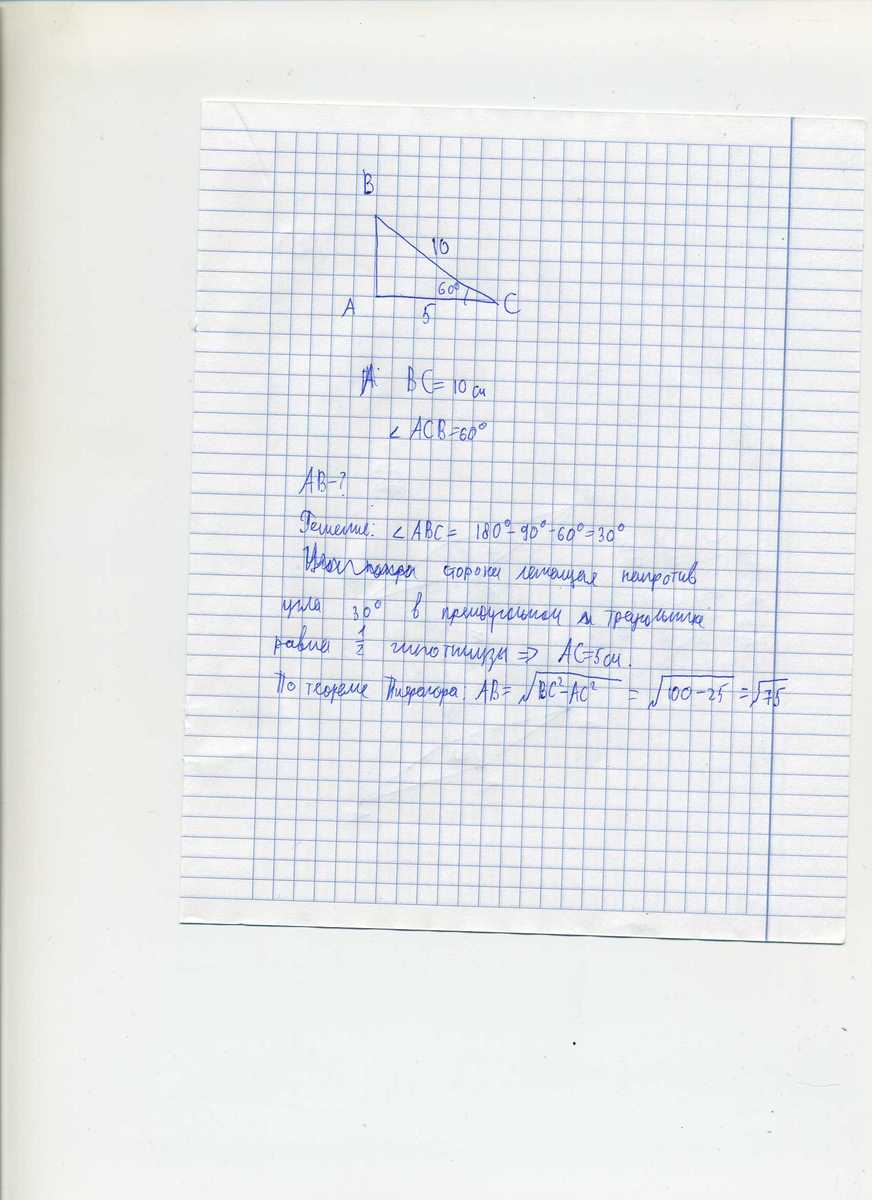 B
10
60°
A
5
C
BC = 10 см
∠ ACB = 60°
AB - ?
Решение: ∠ ABC = 180° - 90° - 60° = 30°
сторона лежащая напротив
угла 30° в прямоугольном треугольнике
равна 1/2 гипотенузы ⇒ AC = 5 см.
По теореме Пифагора: AB = √BC² - AC² = √100 - 25 = √75